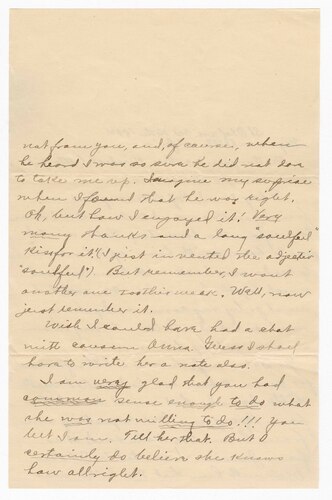 not from you, and, of course, when
he heard I was so sure he did not dare
to take me up. Imagine my surprise
when I found that he was right.
Oh, but how I enjoyed it! Very
many thanks and a long "soulful"
kiss for it. (I just invented the adjective
"soulful"). But remember, I want
another one this week. Well, now
just remember it.
Wish I could have had a chat
with cousin Anna. Guess I shall
have to write her a note also.
I am very glad that you had
common sense enough to do what
she was not willing to do!!! You
bet I am. Tell her that. But I
certainly do believe she knows
how allright.